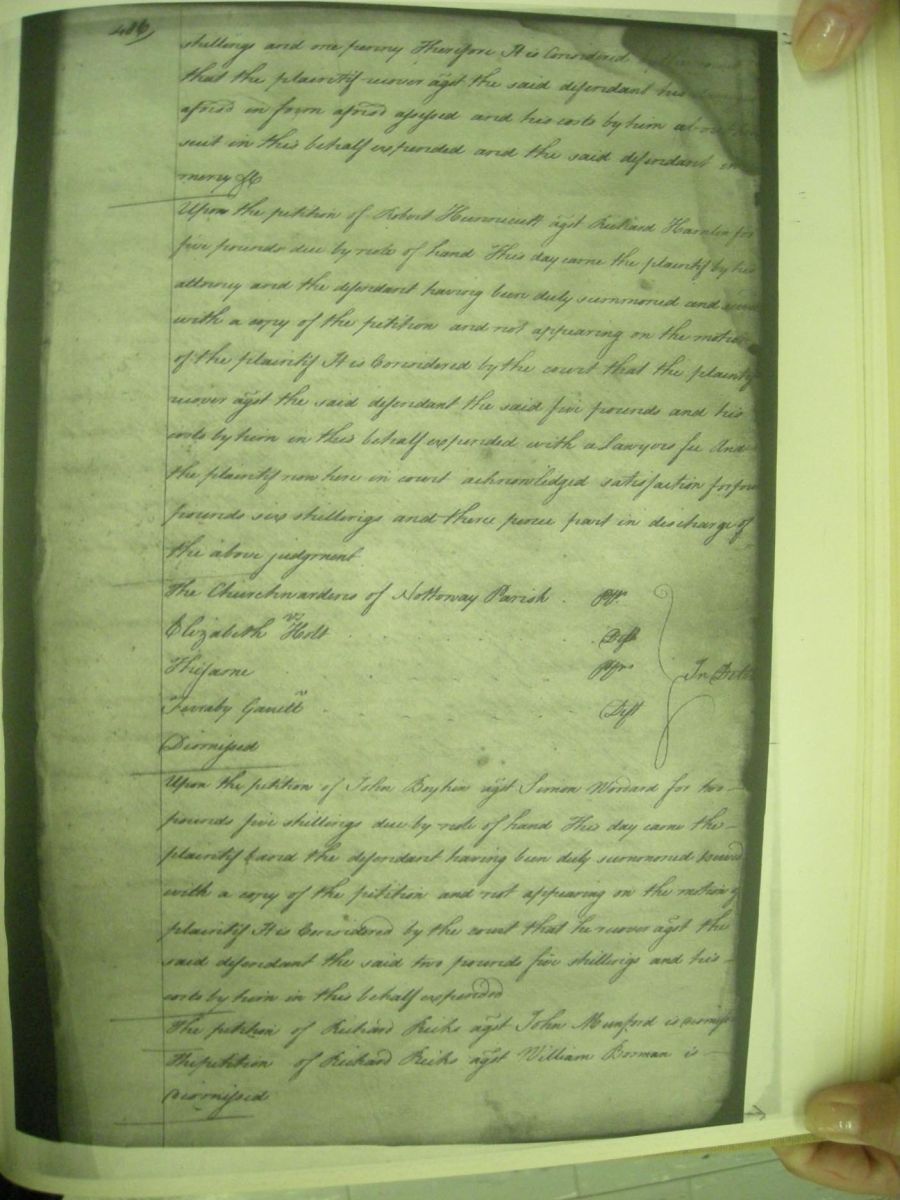 486
shillings and one penny Therefore It is Considered
that the plaintif recover agst the said defendant his
afsd in form afsd assessed and his costs by him about his
suit in this behalf expended and the said defendant in
mercy &c
Upon the petition of Robert Hunnicutt agst Richard Hamlin for
five pounds due by note of hand This day came the plaintif by his
attorney and the defendant having been duly summoned and
with a copy of the petition and not appearing on the motion
of the plaintif It is Considered by the court that the plaintif
recover agst the said defendant the said five pounds and his
costs by him in this behalf expended with a Lawyers fee And
the plaintif now here in court acknowledged satisfaction for four
pounds six shillings and three pence part in discharge of
the above judgment
The Churchwardens of Nottoway Parish Plfs
vs
Elizabeth Holt Deft
The same Plfs
vs
Ferraby Deft
In Debt
Dismissed
Upon the petition of John Boykin agst Simon Woodard for two
pounds five shillings due by note of hand This day came the
plaintif and the defendant having been duly summoned & served
with a copy of the petition and not appearing on the motion of
plaintif It is Considered by the court that he recover agst the
said defendant the said two pounds five shillings and his
costs by him in this behalf expended
The petition of Richard Ricks agst John Munford is dismisst
The petition of Richard Ricks agst William Bowman is
dismissed